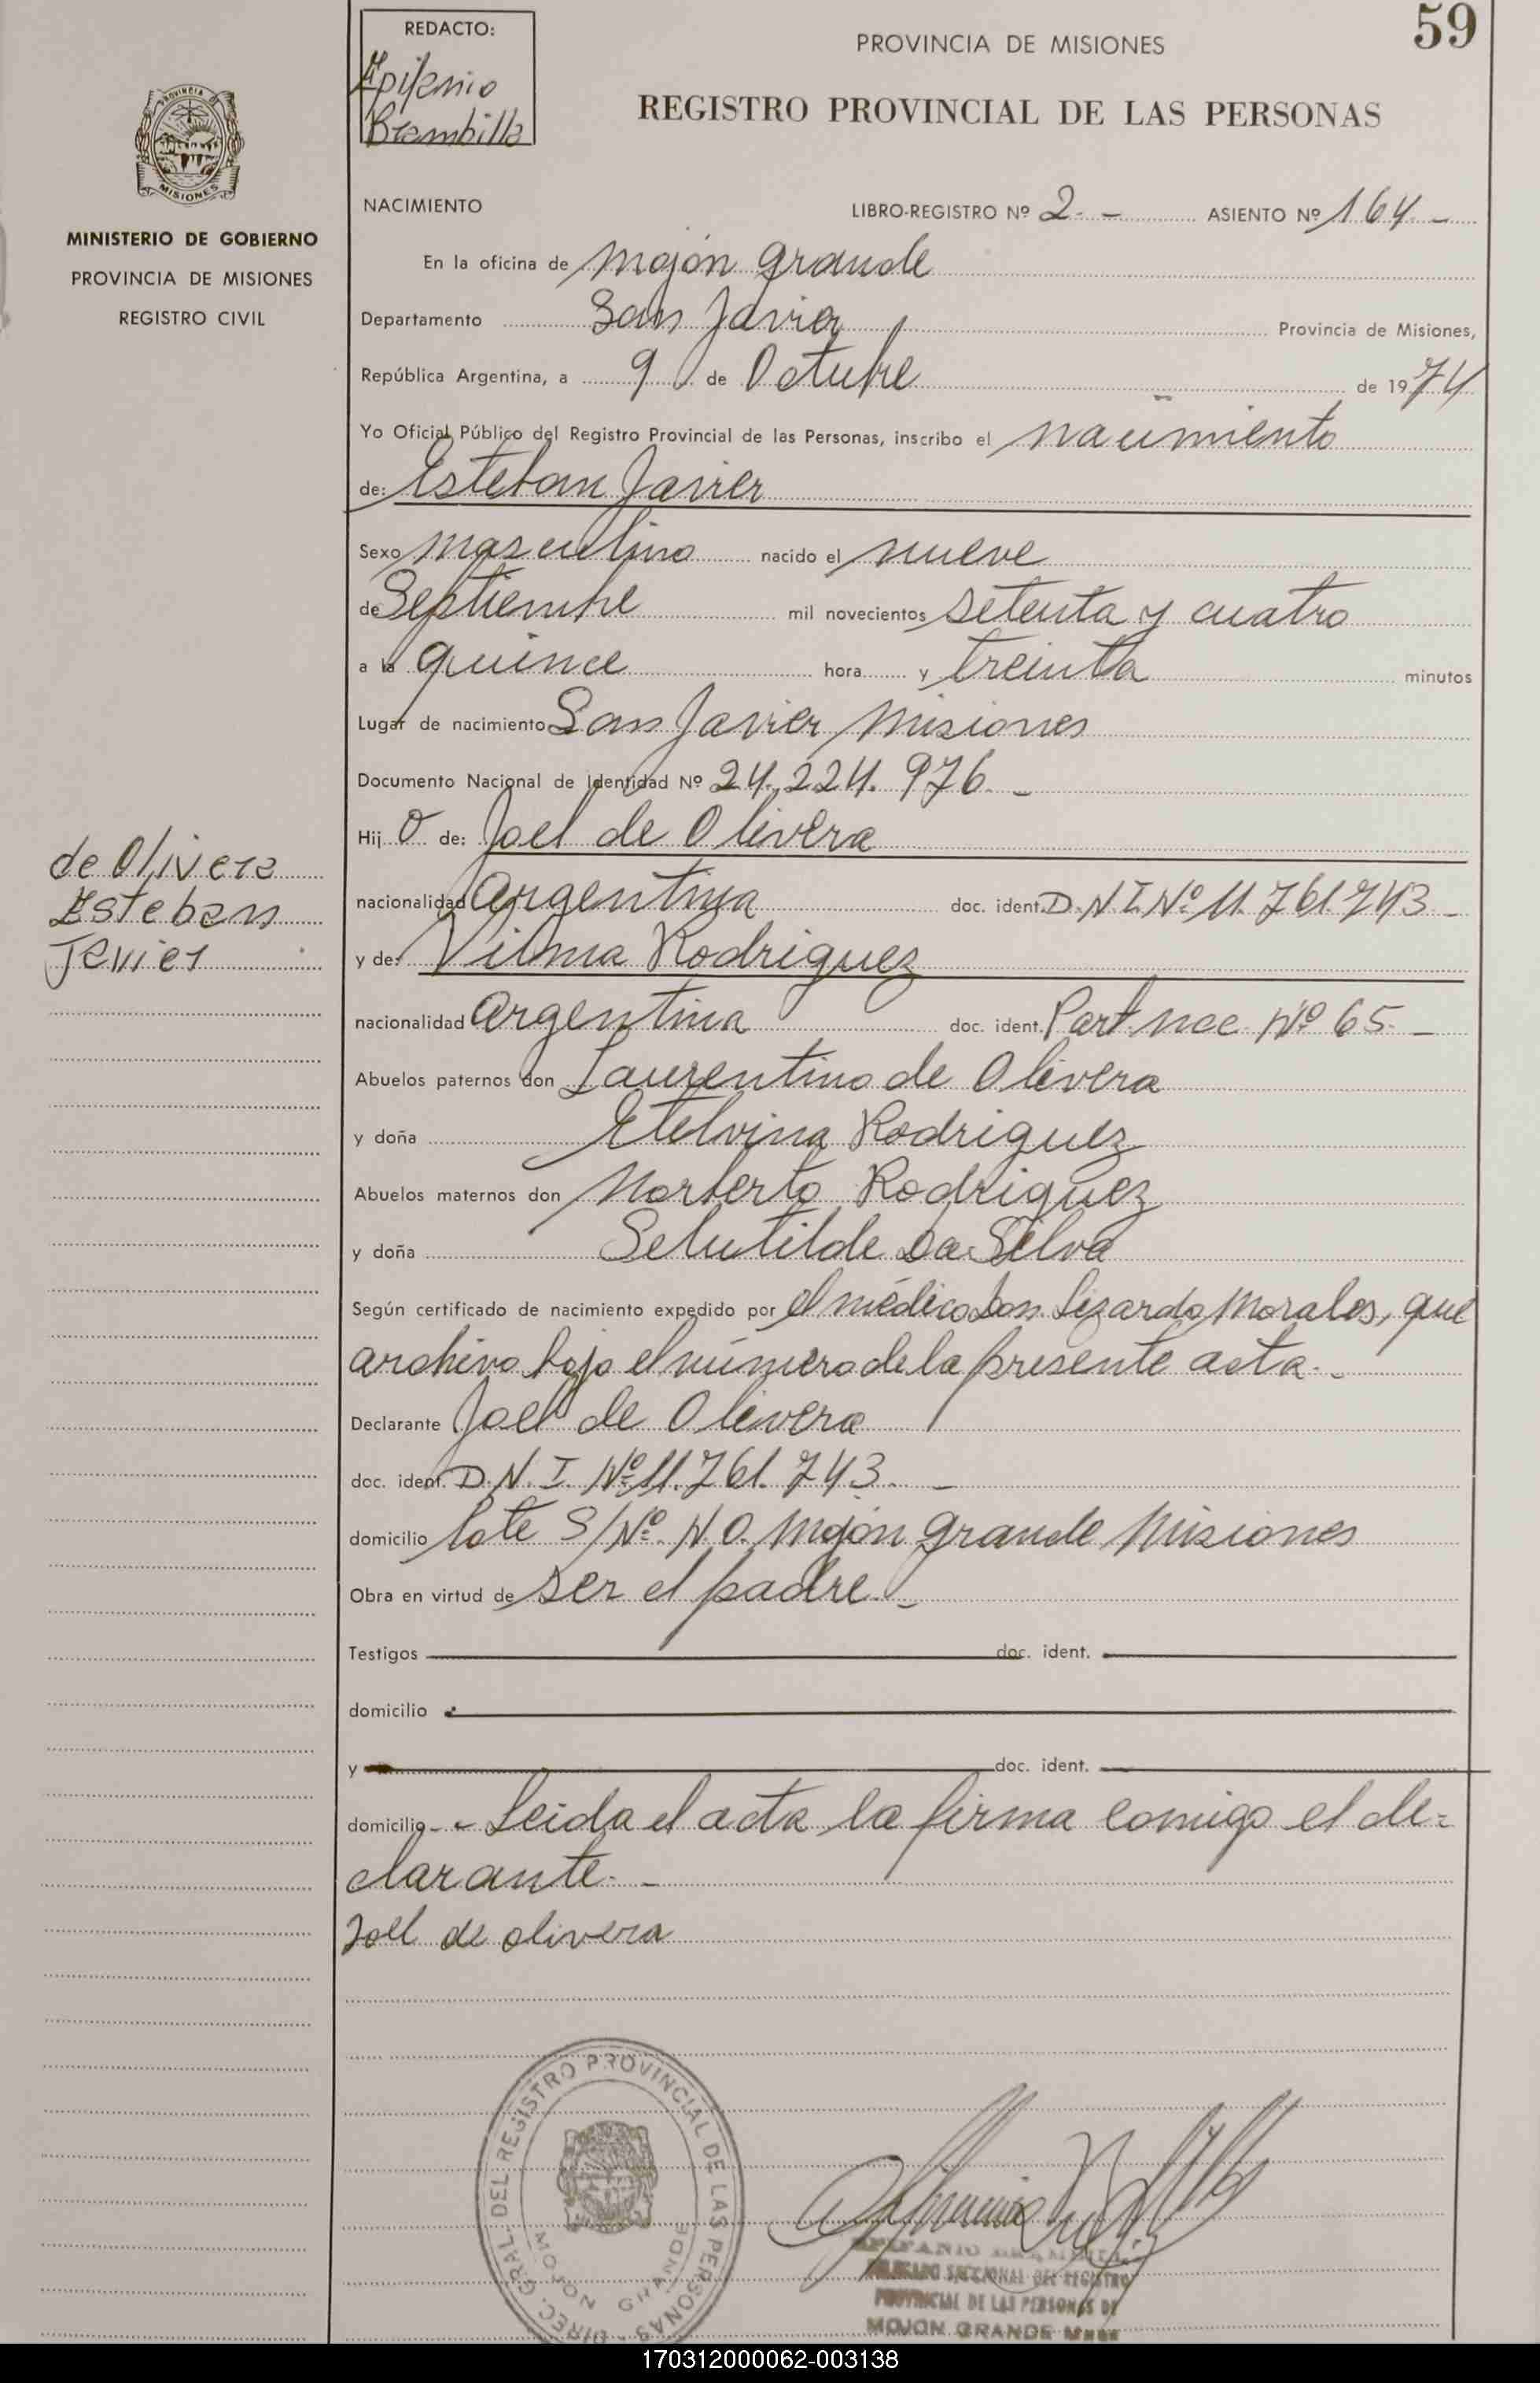 59
REDACTO:
Epifanio
Brambilla
PROVINCIA DE MISIONES
REGISTRO PROVINCIAL DE LAS PERSONAS
PROVINCIA DE
MISIONES
MINISTERIO DE GOBIERNO
PROVINCIA DE MISIONES
REGISTRO CIVIL
NACIMIENTO
LIBRO-REGISTRO Nº 2.- ASIENTO Nº 164.-
En la oficina de Mojón Grande
Departamento San Javier Provincia de Misiones,
República Argentina, a 9 de Octubre de 1974
Yo Oficial Público del Registro Provincial de las Personas, inscribo el nacimiento
de: Esteban Javier
Sexo masculino nacido el nueve
de Septiembre mil novecientos setenta y cuatro
a la quince hora y treinta minutos
Lugar de nacimiento San Javier Misiones
Documento Nacional de Identidad Nº 24.224.976.-
Hij o de: Joel de Olivera
de Olivera
Esteban
Javier
nacionalidad argentina doc. ident. D.N.I. Nº 11.761.743-
y de: Vilma Rodriguez
nacionalidad argentina doc. ident. Part. nac. Nº 65.-
Abuelos paternos don Laurentino de Olivera
y doña Etelvina Rodriguez
Abuelos maternos don Norberto Rodriguez
y doña Da Silva
Según certificado de nacimiento expedido por el médico Don Lizardo Morales, que
archivo bajo el número de la presente acta.-
Declarante Joel de Olivera
doc. ident. D.N.I. Nº 11.761.743.-
domicilio lote S/Nº. N.O. Mojón Grande Misiones
Obra en virtud de ser el padre.-
Testigos doc. ident.
domicilio
y doc. ident.
domicilio.- Leida el acta la firma comigo el de=
clarante.-
Joel de olivera
DIREC. GRAL. DEL REGISTRO PROVINCIAL DE LAS PERSONAS
MOJON GRANDE
DELEGADO SECCIONAL DEL REGISTRO
PROVINCIAL DE LAS PERSONAS DE
MOJON GRANDE
170312000062-003138